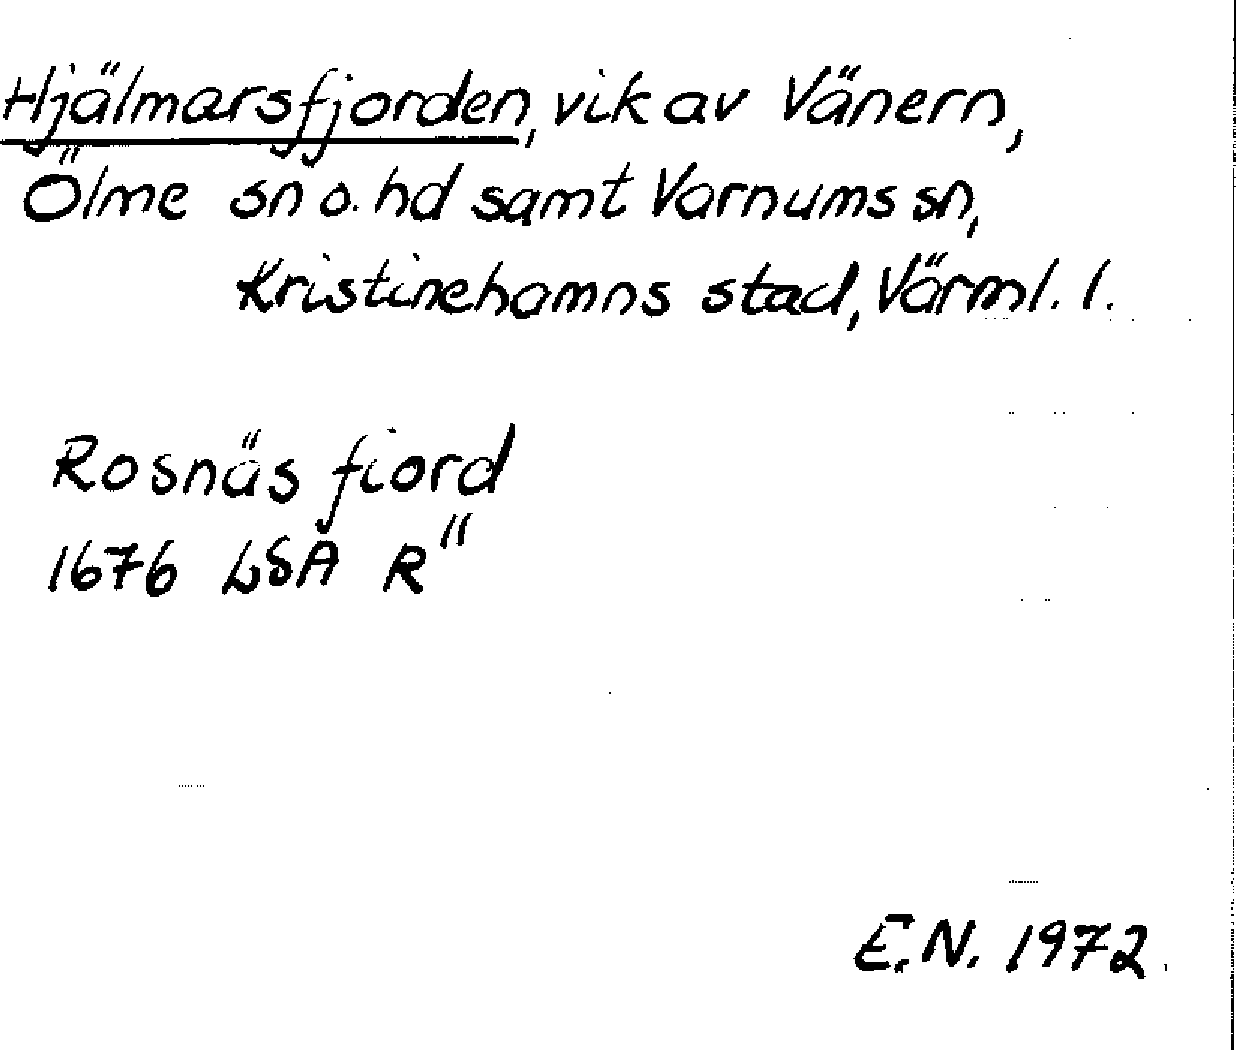 Hjälmarsfjorden, vik av Vänern,
Ölme sn o. hd samt Varnums sn,
Kristinehamns stad, Värml. l.
Rosnäs fiord
1676 LSA R"
E.N. 1972.